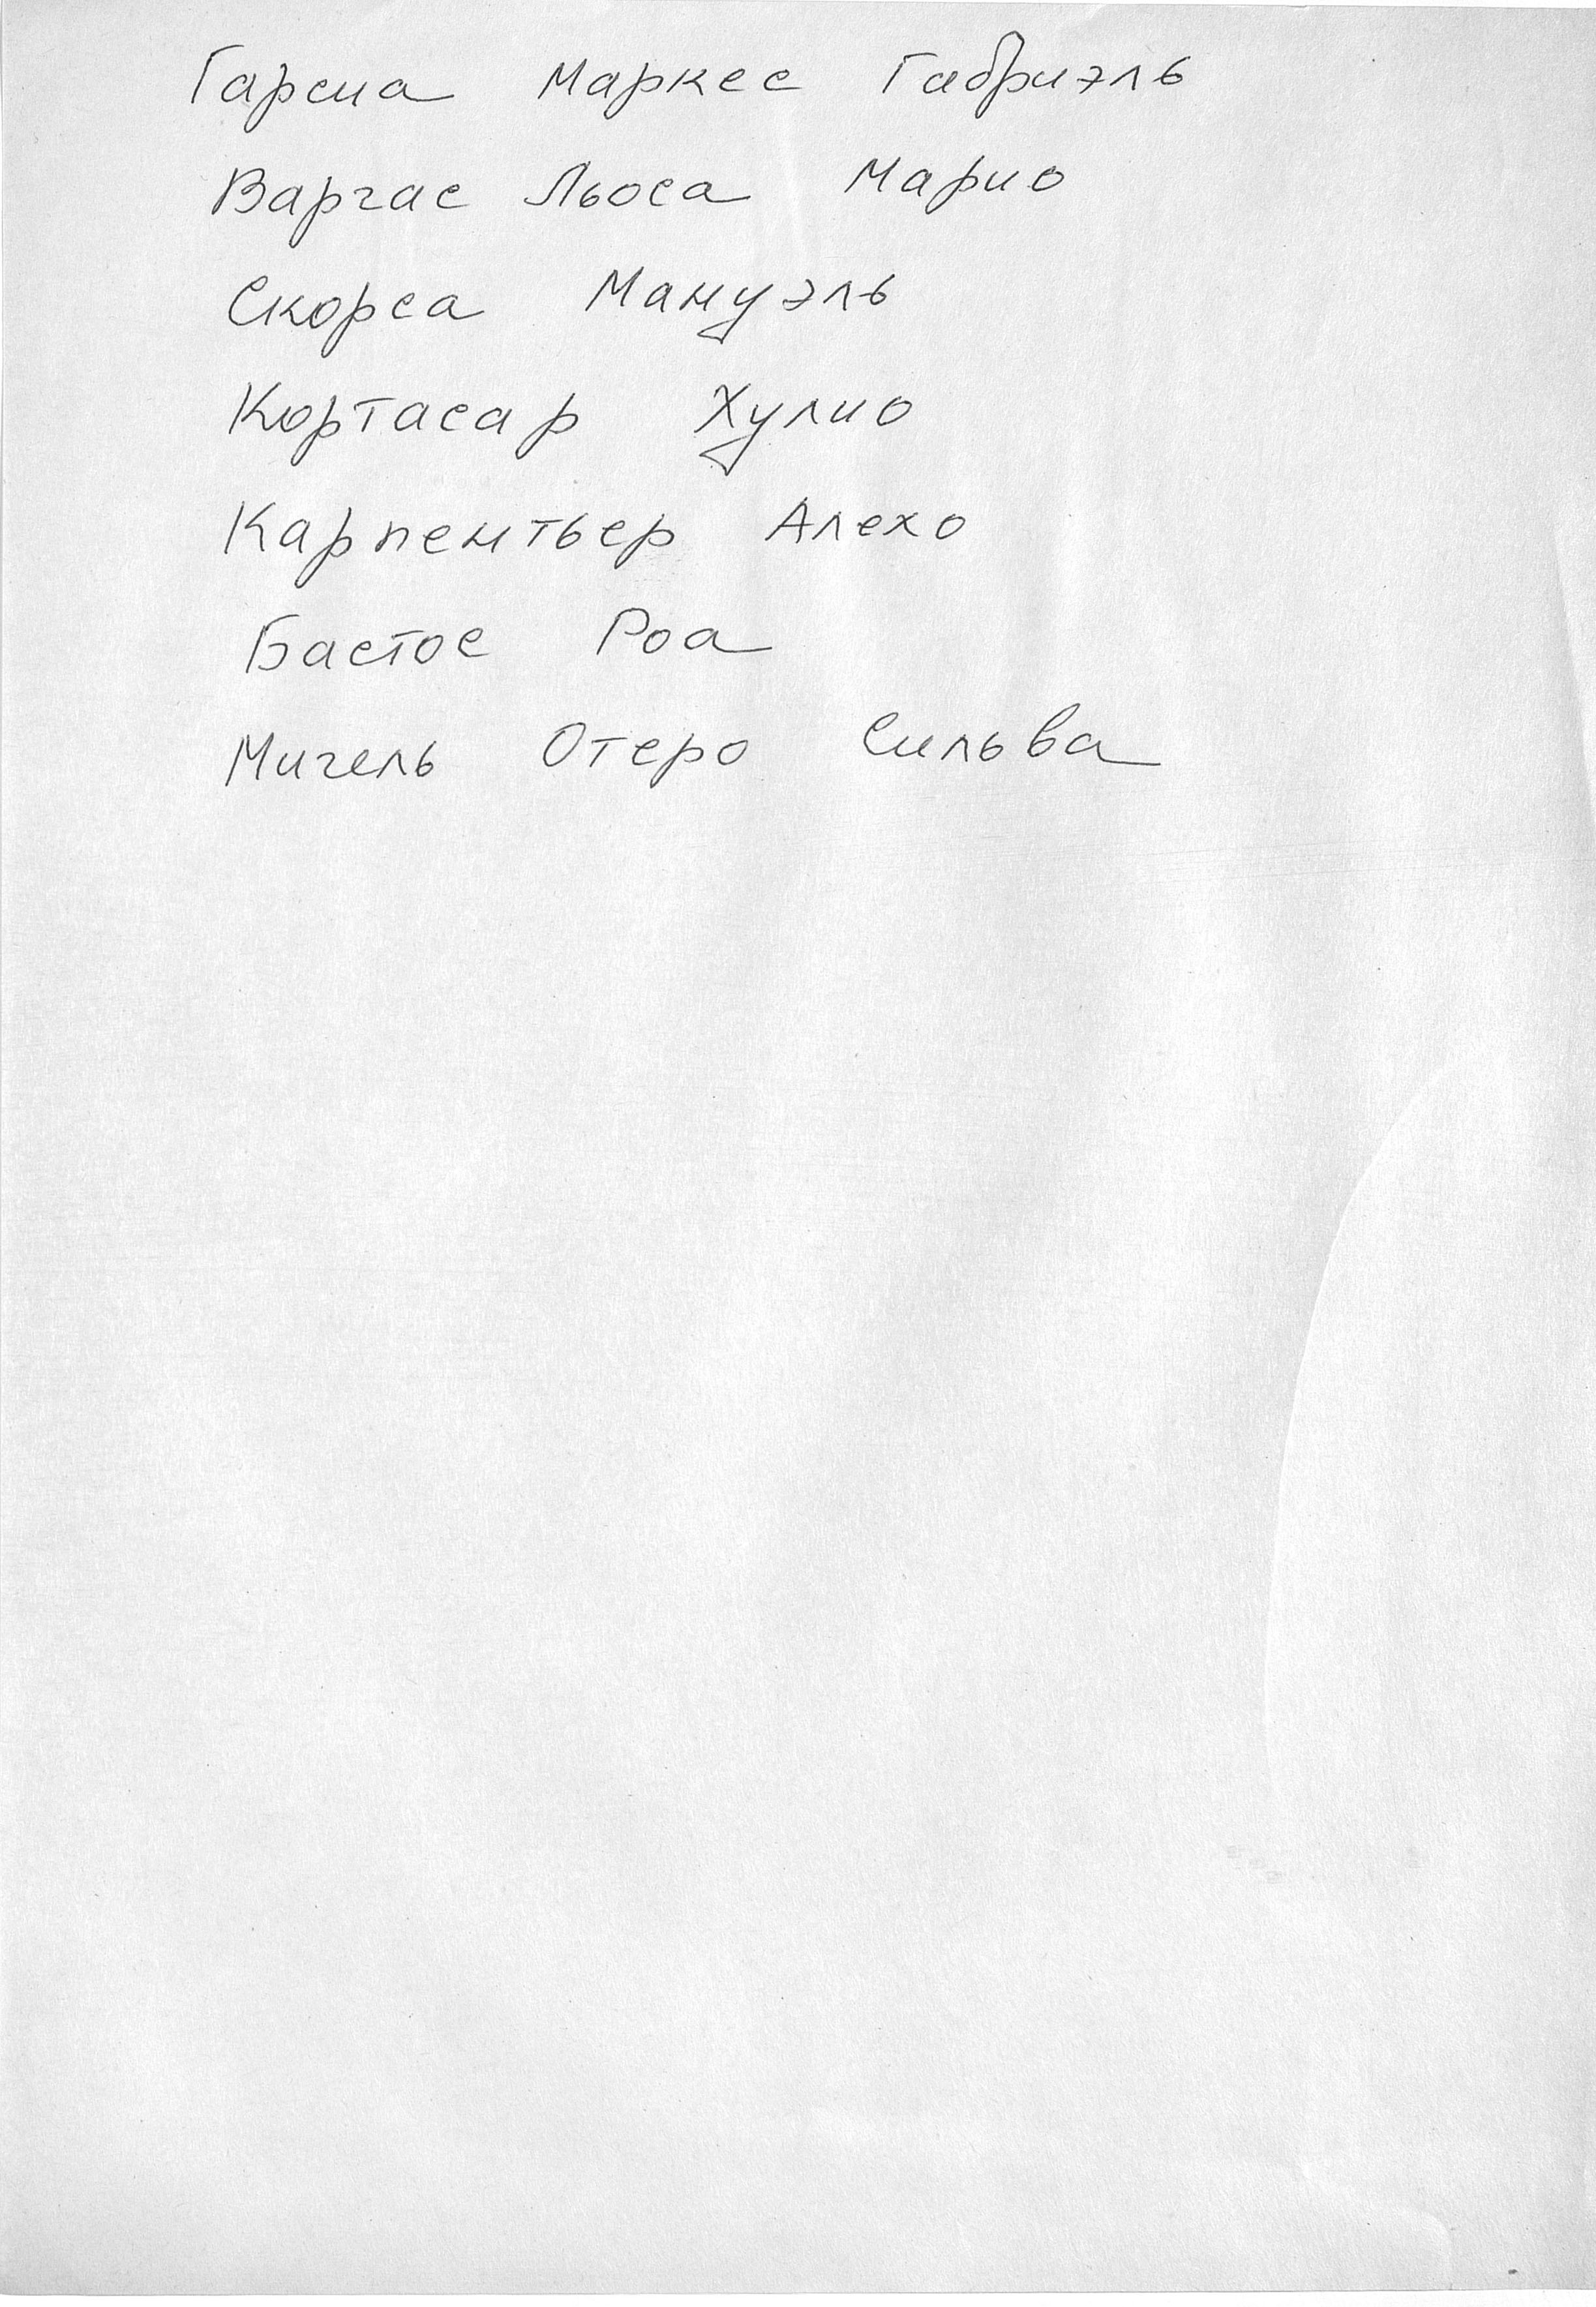 Гарсиа Маркес Габриэль
Варгас Льоса Марио
Скорса Мануэль
Кортасар Хулио
Карпентьер Алехо
Бастос Роа
Мигель Отеро Сильва